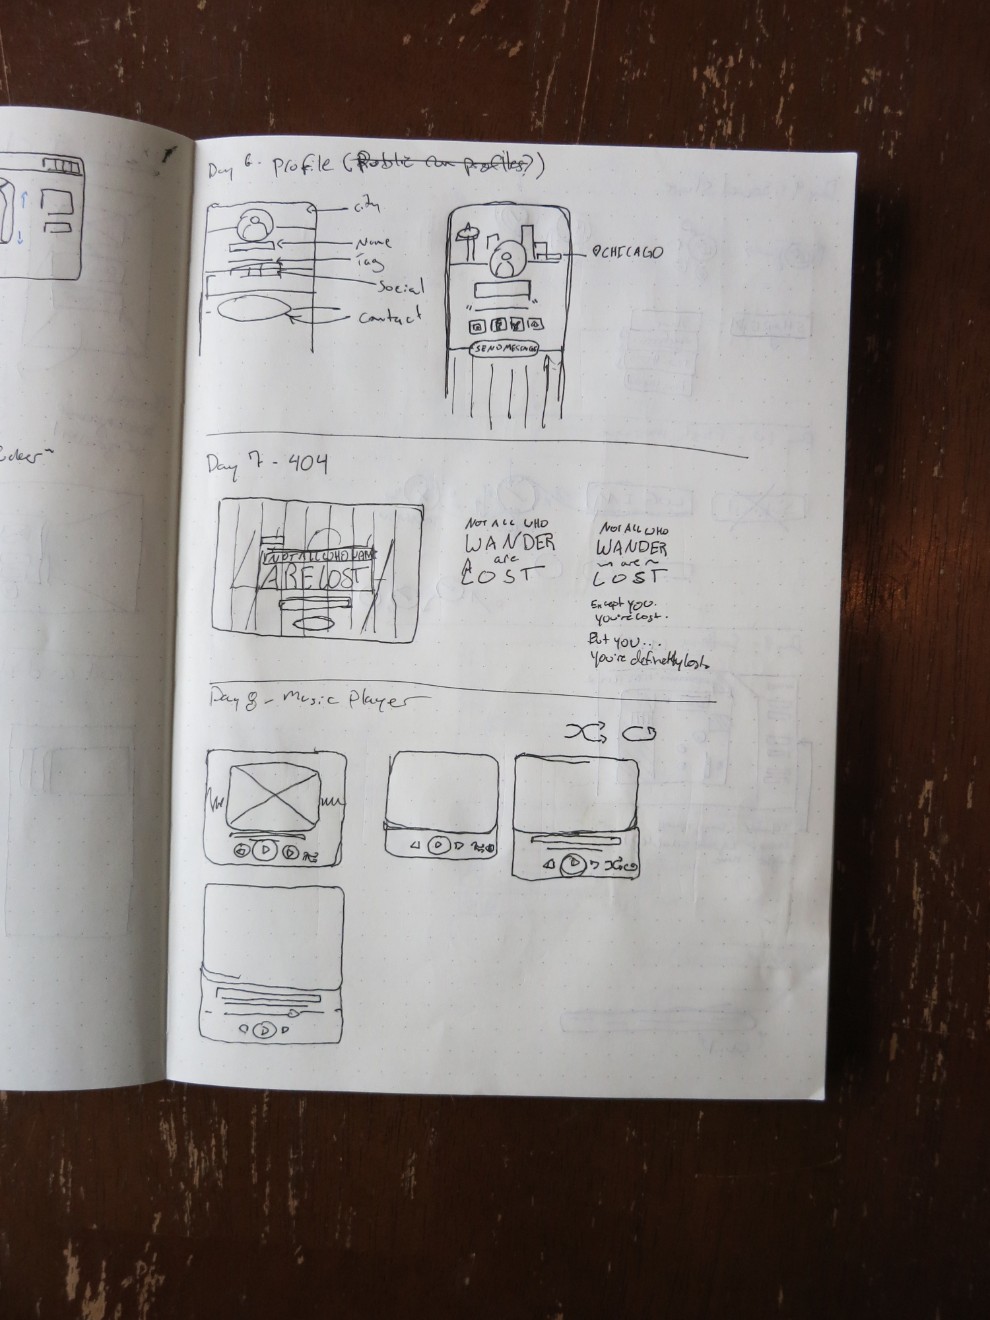 Day 6 - Profile (
City
Name
Tag
Social
Contact
CHICAGO
" "
SEND MESSAGE
Day 7 - 404
NOT ALL WHO WAN
ARE LOST
NOT ALL WHO
WANDER
are
LOST
NOT ALL WHO
WANDER
~ are ~
LOST
Except you.
You're lost.
But you....
You're definitely lost.
Day 8 - Music Player